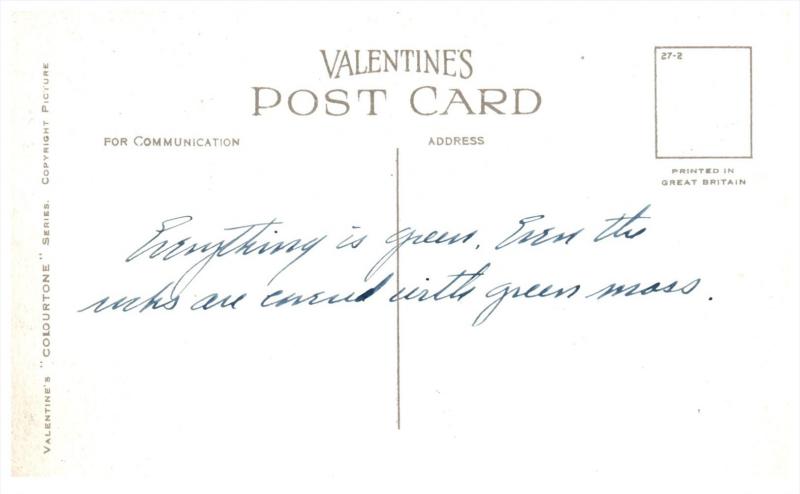 VALENTINE'S
POST CARD
27-2
FOR COMMUNICATION
ADDRESS
PRINTED IN
GREAT BRITAIN
Everything is green. Even the
rocks are covered with green moss.
VALENTINE'S "COLOURTONE" SERIES. COPYRIGHT PICTURE